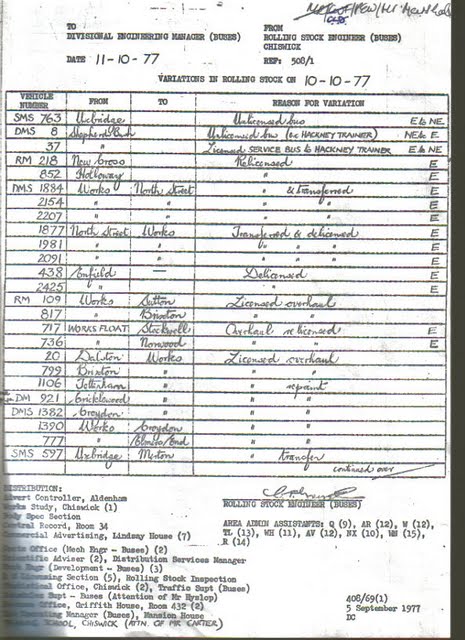 TO FROM
DIVISIONAL ENGINEERING MANAGER (BUSES) ROLLING STOCK ENGINEER (BUSES)
CHISWICK
DATE 11-10-77 REF: 508/1
VARIATIONS IN ROLLING STOCK ON 10-10-77
VEHICLE NUMBER FROM TO REASON FOR VARIATION
SMS 763 Uxbridge Unlicensed bus E to NE
DMS 8 Shepherd's Bush Unlicensed bus (ex HACKNEY TRAINER) NE to E
37 " Licensed SERVICE BUS to HACKNEY TRAINER E to NE
RM 218 New Cross Relicensed E
852 Holloway " E
DMS 1884 Works North Street " & transferred E
2154 " " " " E
2207 " " " " E
1877 North Street Works Transferred & delicensed E
1981 " " " " " E
2091 " " " " " E
438 Enfield — Delicensed E
2425 " " E
RM 109 Works Sutton Licensed overhaul
817 " Brixton " "
717 WORKS FLOAT Stockwell Overhaul relicensed E
736 " Norwood " " E
20 Dalston Works Licensed overhaul
799 Brixton " " "
1106 Tottenham " " repaint
DM 921 Cricklewood " " "
DMS 1382 Croydon " " "
1390 Works Croydon " "
777 " Elmers End " "
SMS 597 Uxbridge Merton " transfer
continued over
DISTRIBUTION:
Advert Controller, Aldenham
Works Study, Chiswick (1)
Body Spec Section
Central Record, Room 34
Commercial Advertising, Lindsay House (7)
ROLLING STOCK ENGINEER (BUSES)
AREA ADMIN ASSISTANTS: Q (9), AR (12), W (12),
TL (13), WH (11), AV (12), NX (10), WN (15),
R (14)
Office (Mech Engr - Buses) (2)
Scientific Adviser (2), Distribution Services Manager
Engr (Development - Buses) (3)
Licensing Section (5), Rolling Stock Inspection
Office, Chiswick (2), Traffic Supt (Buses)
Supt - Buses (Attention of Mr Ryslop)
Office, Griffith House, Room 432 (2)
Operating Manager (Buses), Mansion House
SCHOOL, CHISWICK (ATTN. OF MR CARTER)
408/69(1)
5 September 1977
DC